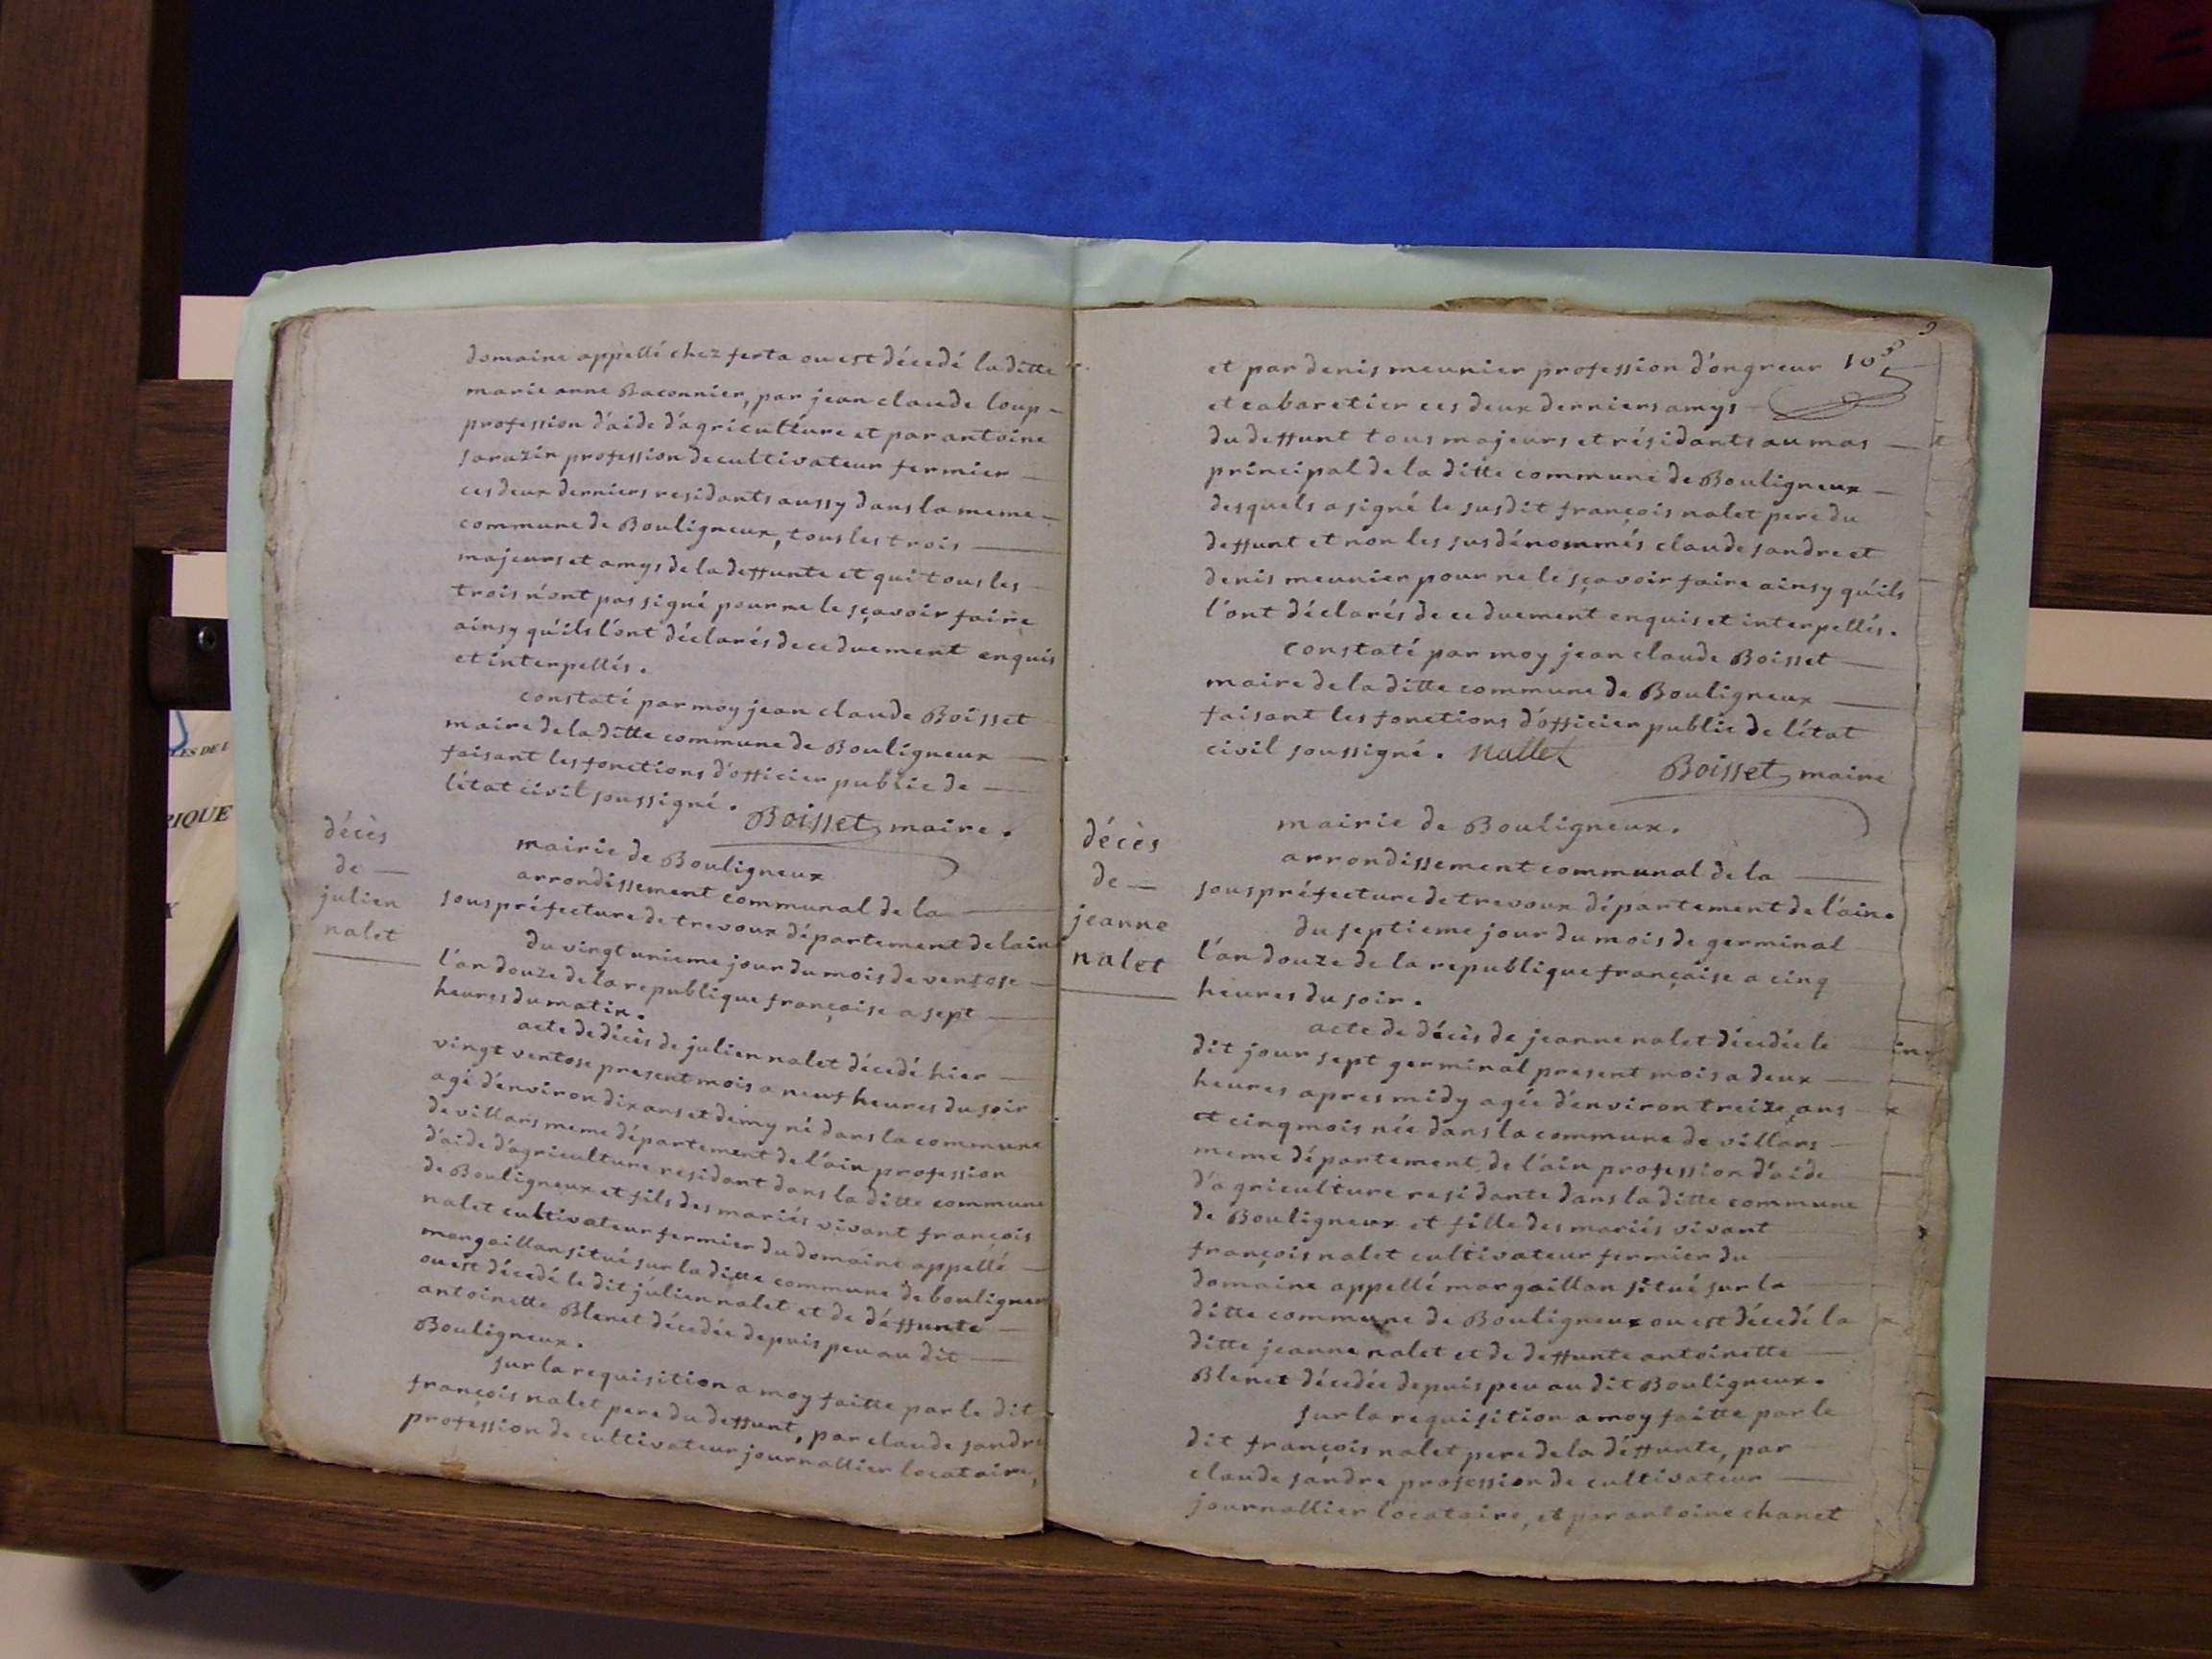 domaine appellé chez ferta ou est décedé la ditte
marie anne Baconnier, par jean claude loup -
profession d'aide d'agriculture et par antoine
sarazin profession de cultivateur fermier
ces deux derniers residants aussy dans la meme
commune de Bouligneux, tous les trois
majeurs et amys de la deffunte et qui tous les
trois n'ont pas signé pour ne le sçavoir faire
ainsy qu'ils l'ont déclarés de ce duement enquis
et interpellés.
constaté par moy jean claude Boisset
maire de la ditte commune de Bouligneux
faisant les fonctions d'officier public de
l'état civil soussigné. Boisset maire.
décès
de
julien
nalet
mairie de Bouligneux
arrondissement communal de la
souspréfecture de trevoux département de lain
du vingt unieme jour du mois de ventose
l'an douze de la republique françoise a sept
heures du matin.
acte de décès de julien nalet décedé hier
vingt ventose present mois a neuf heures du soir
agé d'environ dix ans et demy né dans la commune
de villars meme département de l'ain profession
d'aide d'agriculture residant dans la ditte commune
de Bouligneux et fils des mariés vivant françois
nalet cultivateur fermier du domaine appellé
margaillan situé sur la ditte commune de bouligneux
ou est décedé le dit julien nalet et de déffunte
antoinette Blenet décedée depuis peu au dit
Bouligneux.
sur la requisition a moy faitte par le dit
françois nalet pere du deffunt, par claude sandre
profession de cultivateur journallier locataire,
10
et par denis meunier profession d'ongreur
et cabaretier ces deux derniers amys
du deffunt tous majeurs et résidants au mas
principal de la ditte commune de Bouligneux
desquels a signé le susdit françois nalet pere du
deffunt et non les susdénommés claude sandre et
denis meunier pour ne le sçavoir faire ainsy qu'ils
l'ont déclarés de ce duement enquis et interpellés.
constaté par moy jean claude Boisset
maire de la ditte commune de Bouligneux
faisant les fonctions d'officier public de l'état
civil soussigné. Nallet Boisset maire
décès
de
jeanne
nalet
mairie de Bouligneux.
arrondissement communal de la
souspréfecture de trevoux département de l'ain.
du septieme jour du mois de germinal
l'an douze de la republique françaisе a cinq
heures du soir.
acte de décès de jeanne nalet décedée le
dit jour sept germinal present mois a deux
heures apres midy agée d'environ treize ans
et cinq mois née dans la commune de villars
meme département de l'ain profession d'aide
d'agriculture residante dans la ditte commune
de Bouligneux et fille des mariés vivant
françois nalet cultivateur fermier du
domaine appellé margaillan situé sur la
ditte commune de Bouligneux ou est décedé la
ditte jeanne nalet et de deffunte antoinette
Blenet décedée depuis peu au dit Bouligneux.
sur la requisition a moy faitte par le
dit françois nalet pere de la déffunte, par
claude sandre profession de cultivateur
journallier locataire, et par antoine chanet